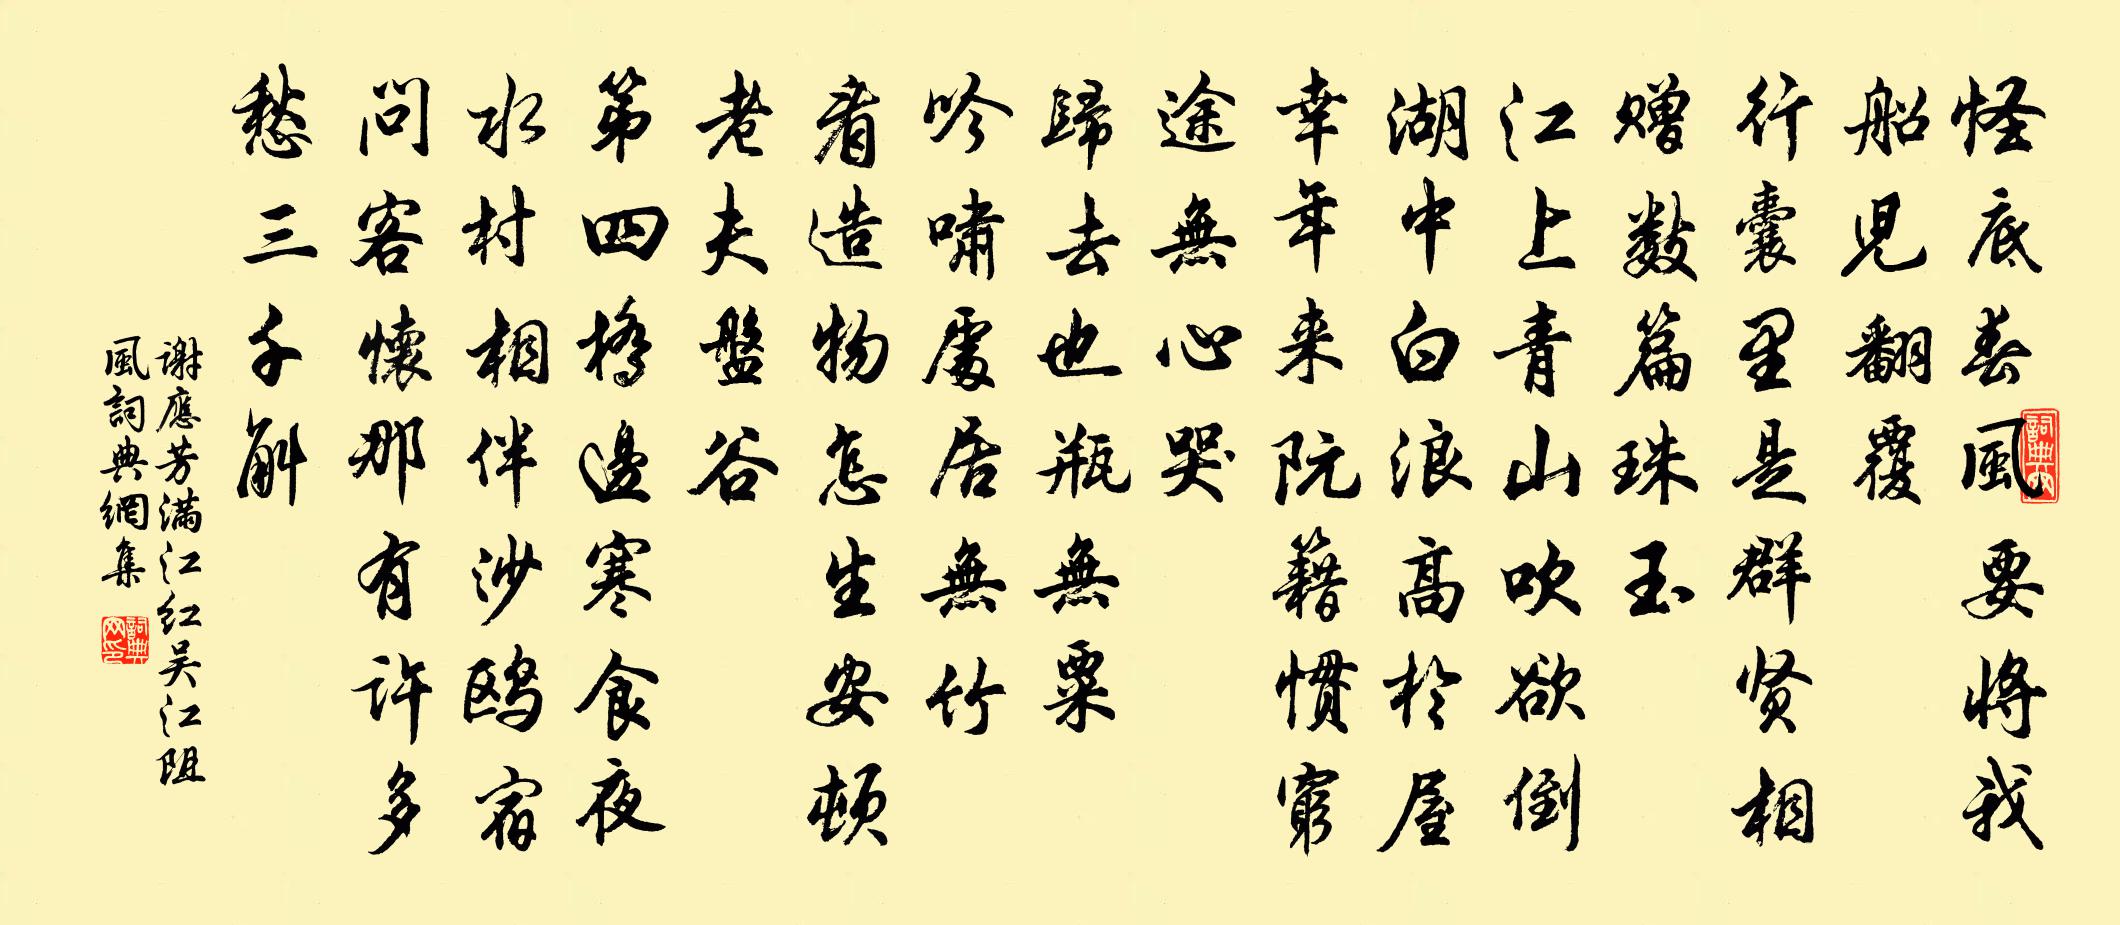 怪底春風要將我
船児翻覆
行囊里是群贤相
赠数篇珠玉
江上青山吹欲倒
湖中白浪高於屋
幸年来阮籍惯窮
途無心哭
歸去也瓶無粟
吟嘯處居無竹
看造物怎生安顿
老夫盤谷
第四橋邊寒食夜
水村相伴沙鸥宿
问客懷那有许多
愁三千斛
谢應芳满江红吴江阻
風詞典網集
詞典网
詞典网印